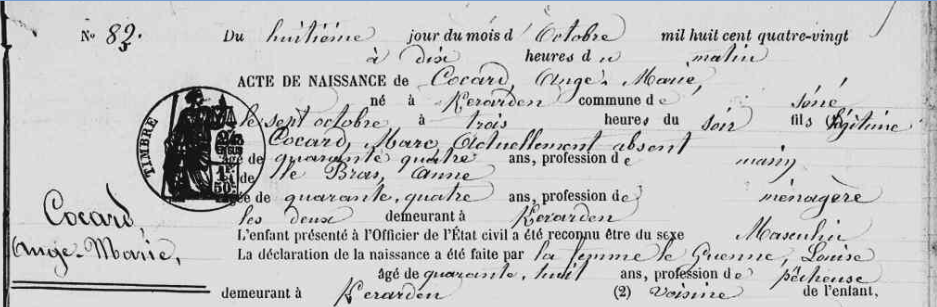 No 82. Du huitième jour du mois d'Octobre mil huit cent quatre-vingt
à dix heures du matin
ACTE DE NAISSANCE de Cocard, Ange-Marie,
né à Kerarden commune de Séné
le sept octobre à trois heures du soir fils légitime
Cocard, Marc, Actuellement absent
âgé de quarante quatre ans, profession de marin
et de Le Bras, Anne
âgée de quarante, quatre ans, profession de ménagère
les deux demeurant à Kerarden
L'enfant présenté à l'Officier de l'État civil a été reconnu être du sexe Masculin
La déclaration de la naissance a été faite par la femme le Guenne, Louise
âgé de quarante, huit ans, profession de pêcheuse
demeurant à Kerarden (2) voisine de l'enfant,
TIMBRE
1F
50c
Cocard,
Ange-Marie,